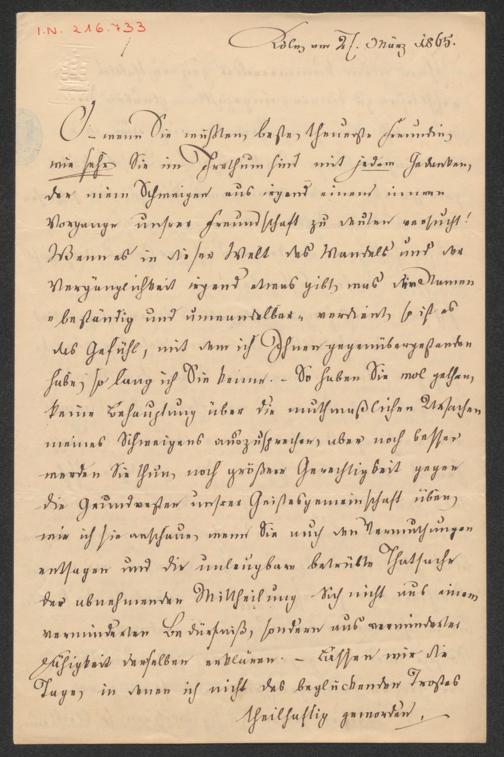 I.N. 216.733
Köln, am 27. März 1865.
O – wenn Sie wüßten, beste, theuerste Freundin,
wie sehr Sie im Irrthum sind mit jedem Gedanken,
der mein Schweigen aus irgend einem innern
Vorgange unsrer Freundschaft zu deuten versucht!
Wenn es in dieser Welt des Wandels und der
Vergänglichkeit irgend etwas gibt, was den Namen
„beständig und unwandelbar“ verdient, so ist es
das Gefühl, mit dem ich Ihnen gegenübergestanden
habe, so lang ich Sie kenne. – So haben Sie wol gethan,
keine Behauptung über die muthmaßlichen Ursachen
meines Schweigens auszusprechen, aber noch besser
werden Sie thun, noch größere Gerechtigkeit gegen
die Grundvesten unsrer Geistesgemeinschaft üben,
wie ich sie anschaue, wenn Sie auch den Vermuthungen
entsagen und die unleugbare betrübte Thatsache
der abnehmenden Mittheilung sich nicht aus einem
verminderten Bedürfniß, sondern aus verminderter
Fähigkeit derselben erklären. – Lassen wir die
Tage, in denen ich nicht des beglückenden Trostes
theilhaftig geworden,